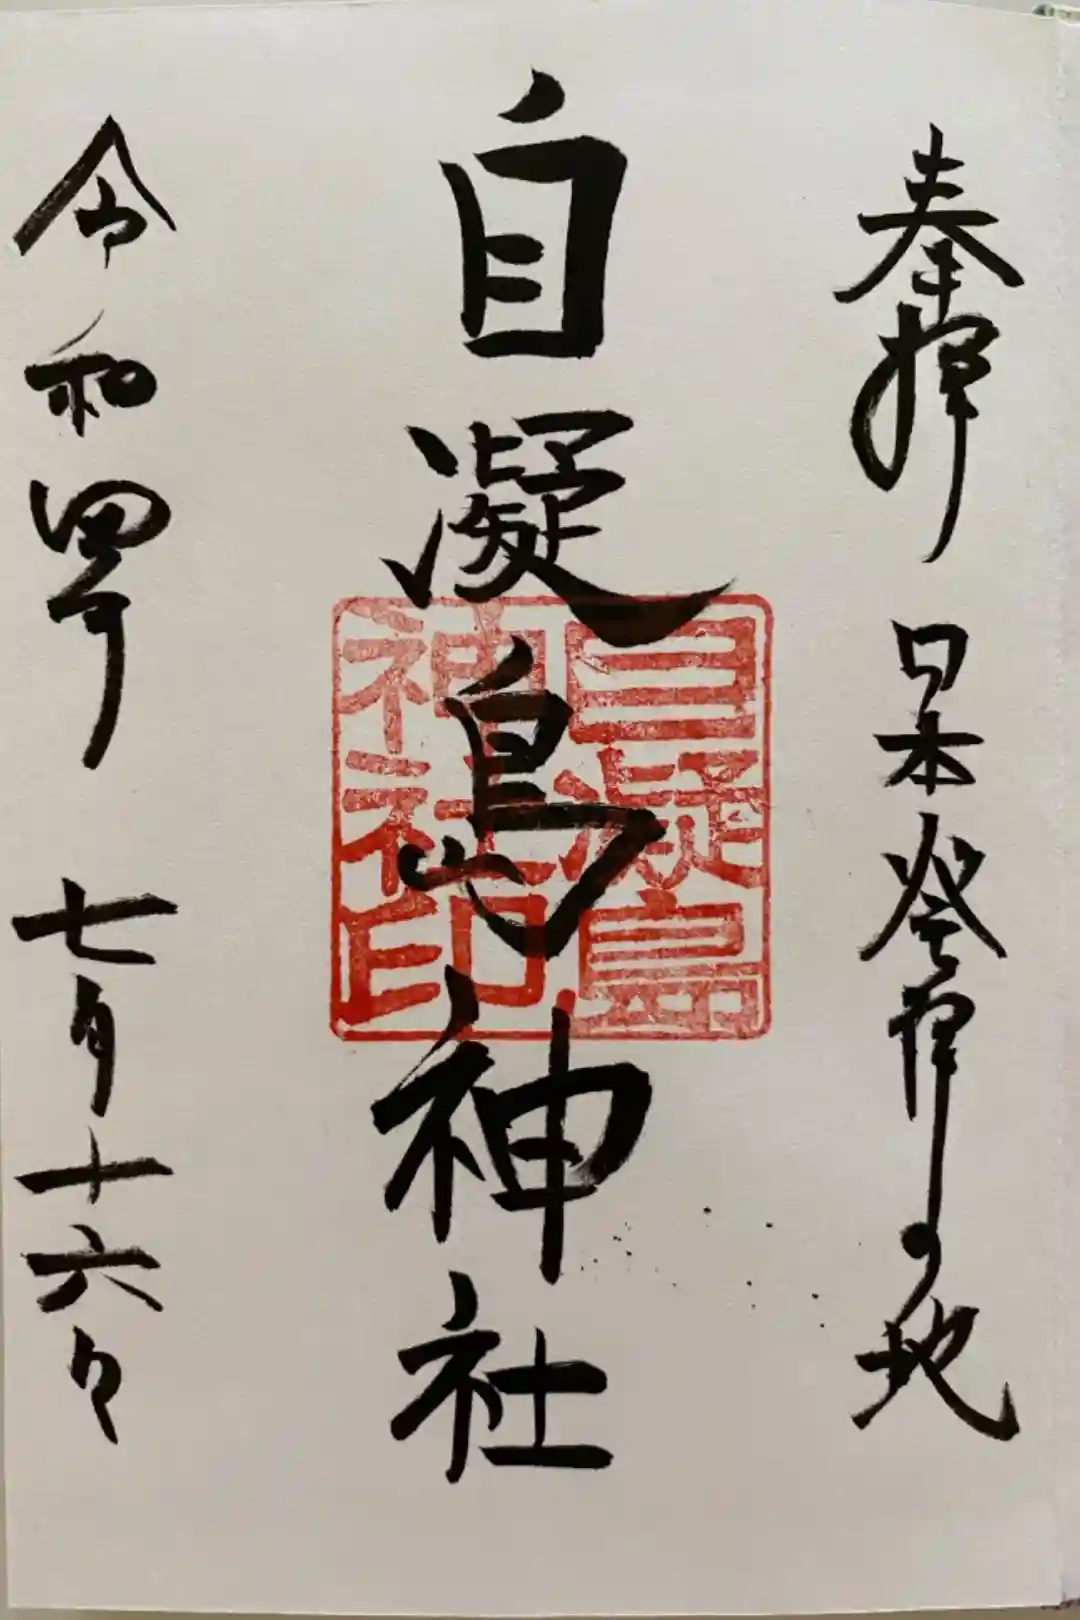 奉拝 日本発祥の地
自凝島神社
自凝島
神社印
令和四年 七月十六日